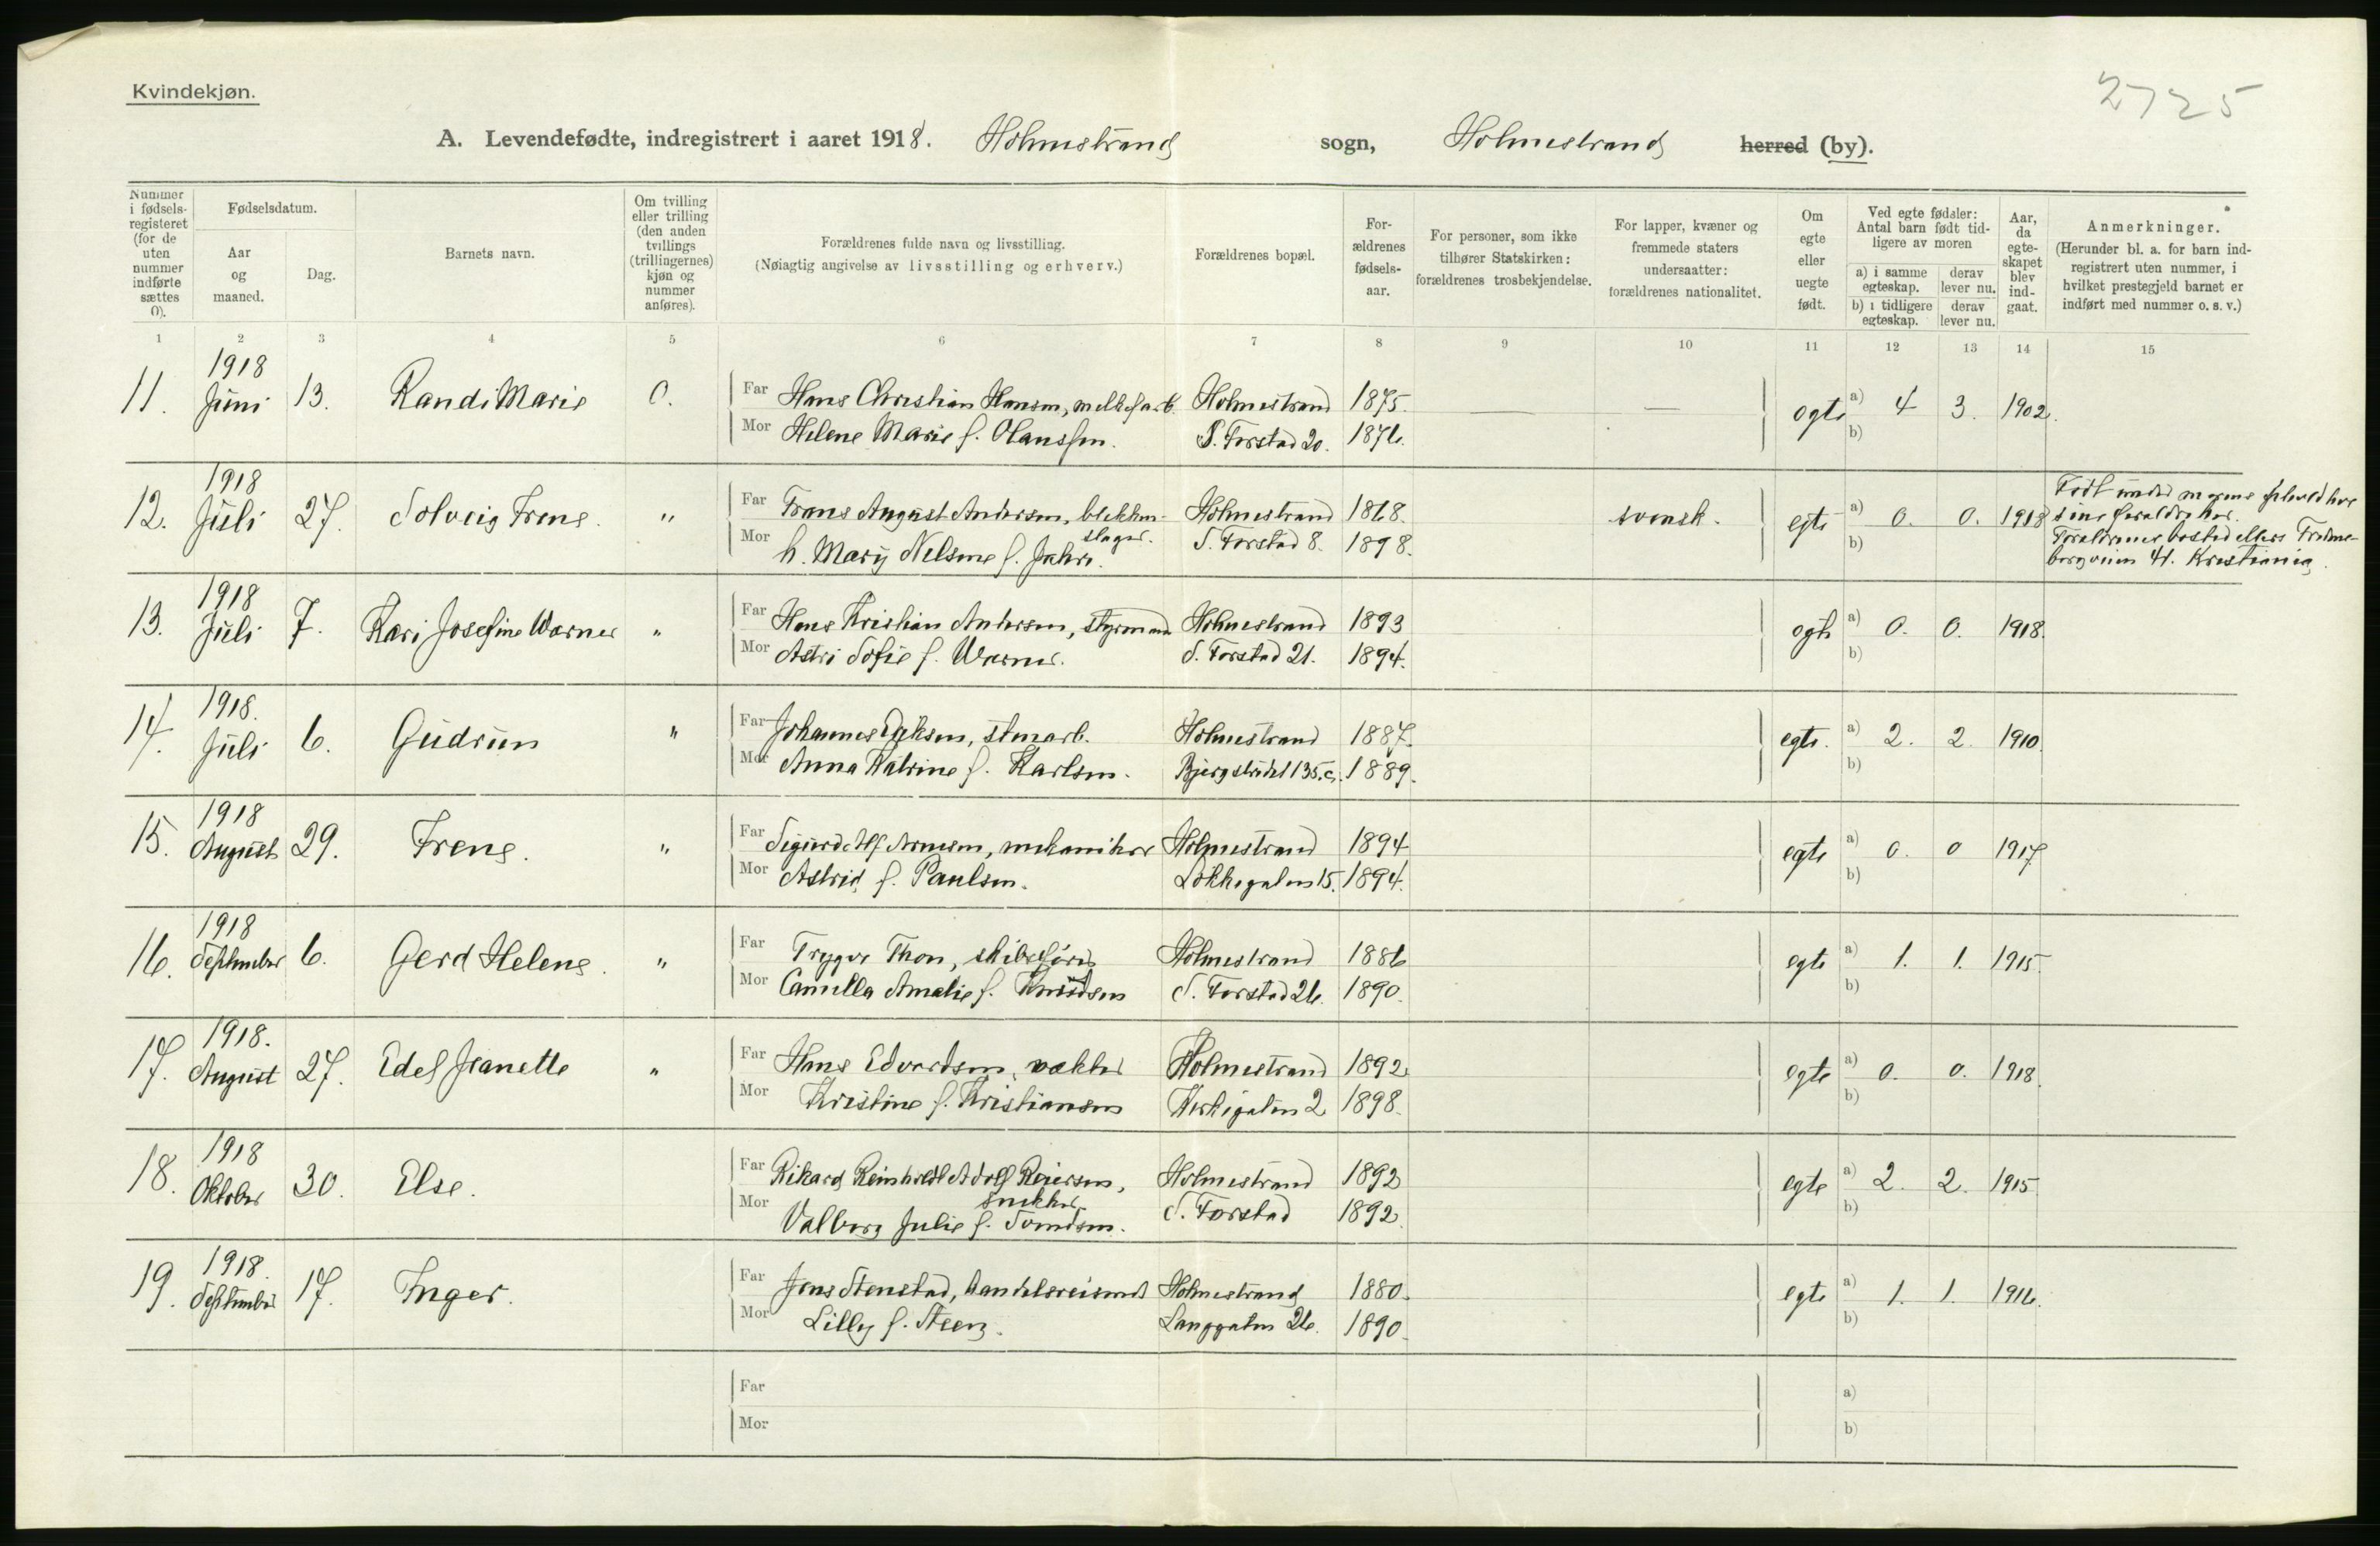 Kvindekjøn.
2725
A. Levendefødte, indregistrert i aaret 1918. Holmestrand sogn, Holmestrand herred (by).
Nummer i fødsels-registeret (for de uten nummer indførte sættes 0).
Fødselsdatum.
Aar og maaned.
Dag.
Barnets navn.
Om tvilling eller trilling (den anden tvillings (trillingernes) kjøn og nummer anføres).
Forældrenes fulde navn og livsstilling.
(Nøiagtig angivelse av livsstilling og erhverv.)
Forældrenes bopæl.
For-ældrenes fødsels-aar.
For personer, som ikke tilhører Statskirken: forældrenes trosbekjendelse.
For lapper, kvæner og fremmede staters undersaatter: forældrenes nationalitet.
Om egte eller uegte født.
Ved egte fødsler: Antal barn født tid-ligere av moren
a) i samme egteskap.
derav lever nu.
b) i tidligere egteskap.
derav lever nu.
Aar, da egte-skapet blev ind-gaat.
Anmerkninger.
(Herunder bl. a. for barn ind-registrert uten nummer, i hvilket prestegjeld barnet er indført med nummer o. s. v.)
1 2 3 4 5 6 7 8 9 10 11 12 13 14 15
11. 1918 Juni 13. Randi Marie 0. Far Hans Christian Hansen, Holmestrand 1875. — — egte a) 4 3. 1902.
Mor Helene Marie f. Hanssen. S. Forstad 20. 1876. b)
12. 1918 Juli 27. Solveig Irene. " Far Frans August Andersen, blikken-slager. Holmestrand 1868. svensk. egte a) 0. 0. 1918
Mor h. Mary Nelsine f. S. Forstad 8. 1898. b)
Født under morens ophold hos
sine forældre her.
Forældrenes bosted ellers
41. Kristiania.
13. 1918 Juli 7. Kari Josefine Warner " Far Hans Kristian Andersen, styrmand Holmestrand 1893 egte a) 0. 0. 1918.
Mor Astri Sofie f. Warner. S. Forstad 21. 1894. b)
14. 1918. Juli 6. Gudrun " Far Johannes stenarb. Holmestrand 1887. egte. a) 2. 2. 1910.
Mor Anna Katrine f. Karlsen. 135.c. 1889. b)
15. 1918 August 29. Irene. " Far Sigurd Alf Arnesen, mekaniker Holmestrand 1894 egte a) 0. 0 1917
Mor Astrid f. Paulsen. Løkkegaten 15. 1894. b)
16. 1918 September 6. Gerd Helene. " Far Trygve Thon, skibsfører Holmestrand 1886 egte a) 1. 1. 1915.
Mor Camilla Amalie f. Knudsen S. Forstad 26. 1890. b)
17. 1918. August 27. Edel Jeanette " Far Hans Edvardsen, vækter Holmestrand 1892 egte a) 0. 0. 1918.
Mor Kristine f. Kristiansen Kirkegaten 2 1898. b)
18. 1918 Oktober 30. Else. Far Rikard Reinholdt Adolf Reiersen, snekker Holmestrand 1892 egte a) 2. 2. 1915.
Mor Valborg Julie f. Svendsen. S. Forstad 1892. b)
19. 1918. September 17. Inger. Far Jens Stenstad, handelsreisende Holmestrand 1880. egte a) 1. 1. 1916.
Mor Lilly f. Steen. Langgaten 26. 1890. b)
Far a)
Mor b)